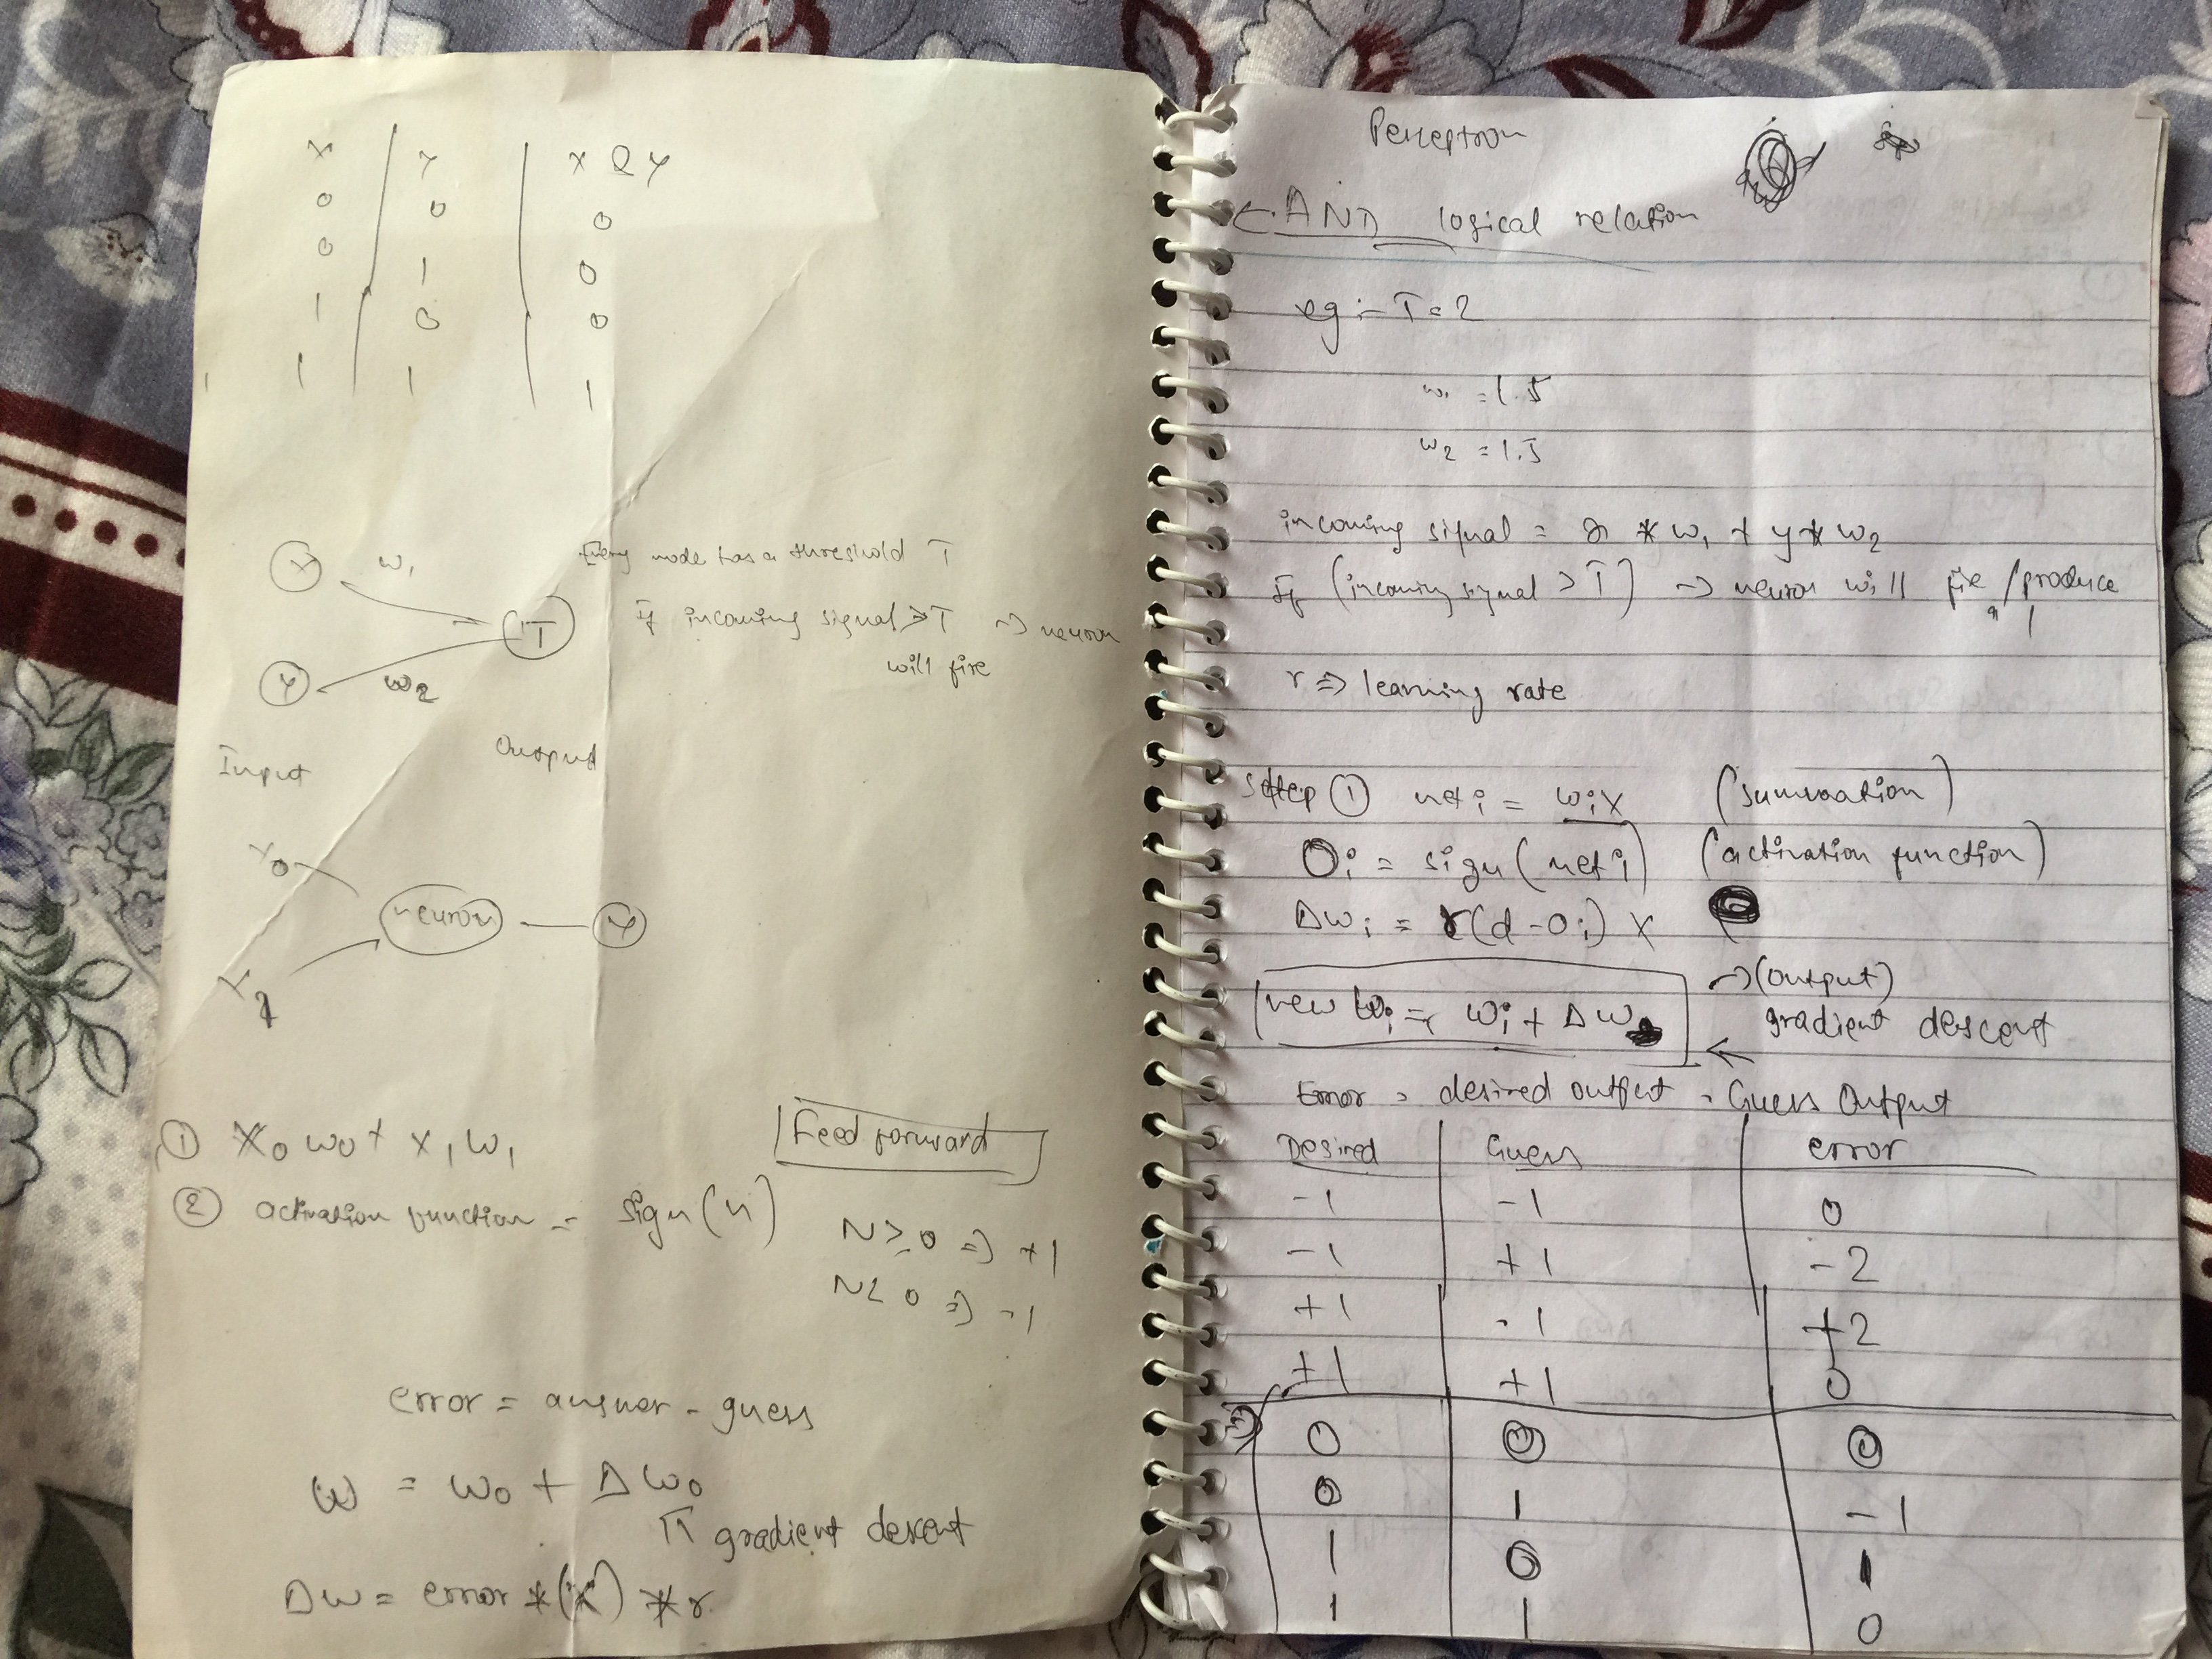 X Y X & Y
0 0 0
0 1 0
1 0 0
1 1 1
X w1
Every node has a threshold T
T
If incoming signal > T → neuron
will fire
Y w2
Input Output
X0
neuron Y
X1
① X0 w0 + X1 w1
Feed forward
② activation function = sign(n)
N ≥ 0 => +1
N < 0 => -1
error = answer - guess
W = W0 + Δ W0
↑ gradient descent
Δ W = error * (X) * r
Perceptron
← AND logical relation
eg :- T = 2
w1 = 1.5
w2 = 1.5
incoming signal = x * w1 + y * w2
If (incoming signal > T) → neuron will fire / produce
1
r => learning rate
Step ① net i = wi X (summation)
Oi = sign (net i) (activation function)
Δ wi = r(d - Oi) X
→ (output)
new wi = wi + Δ w
gradient descent
Error = desired output - Guess Output
Desired Guess error
-1 -1 0
-1 +1 -2
+1 -1 +2
+1 +1 0
0 0 0
0 1 -1
1 0 1
1 1 0